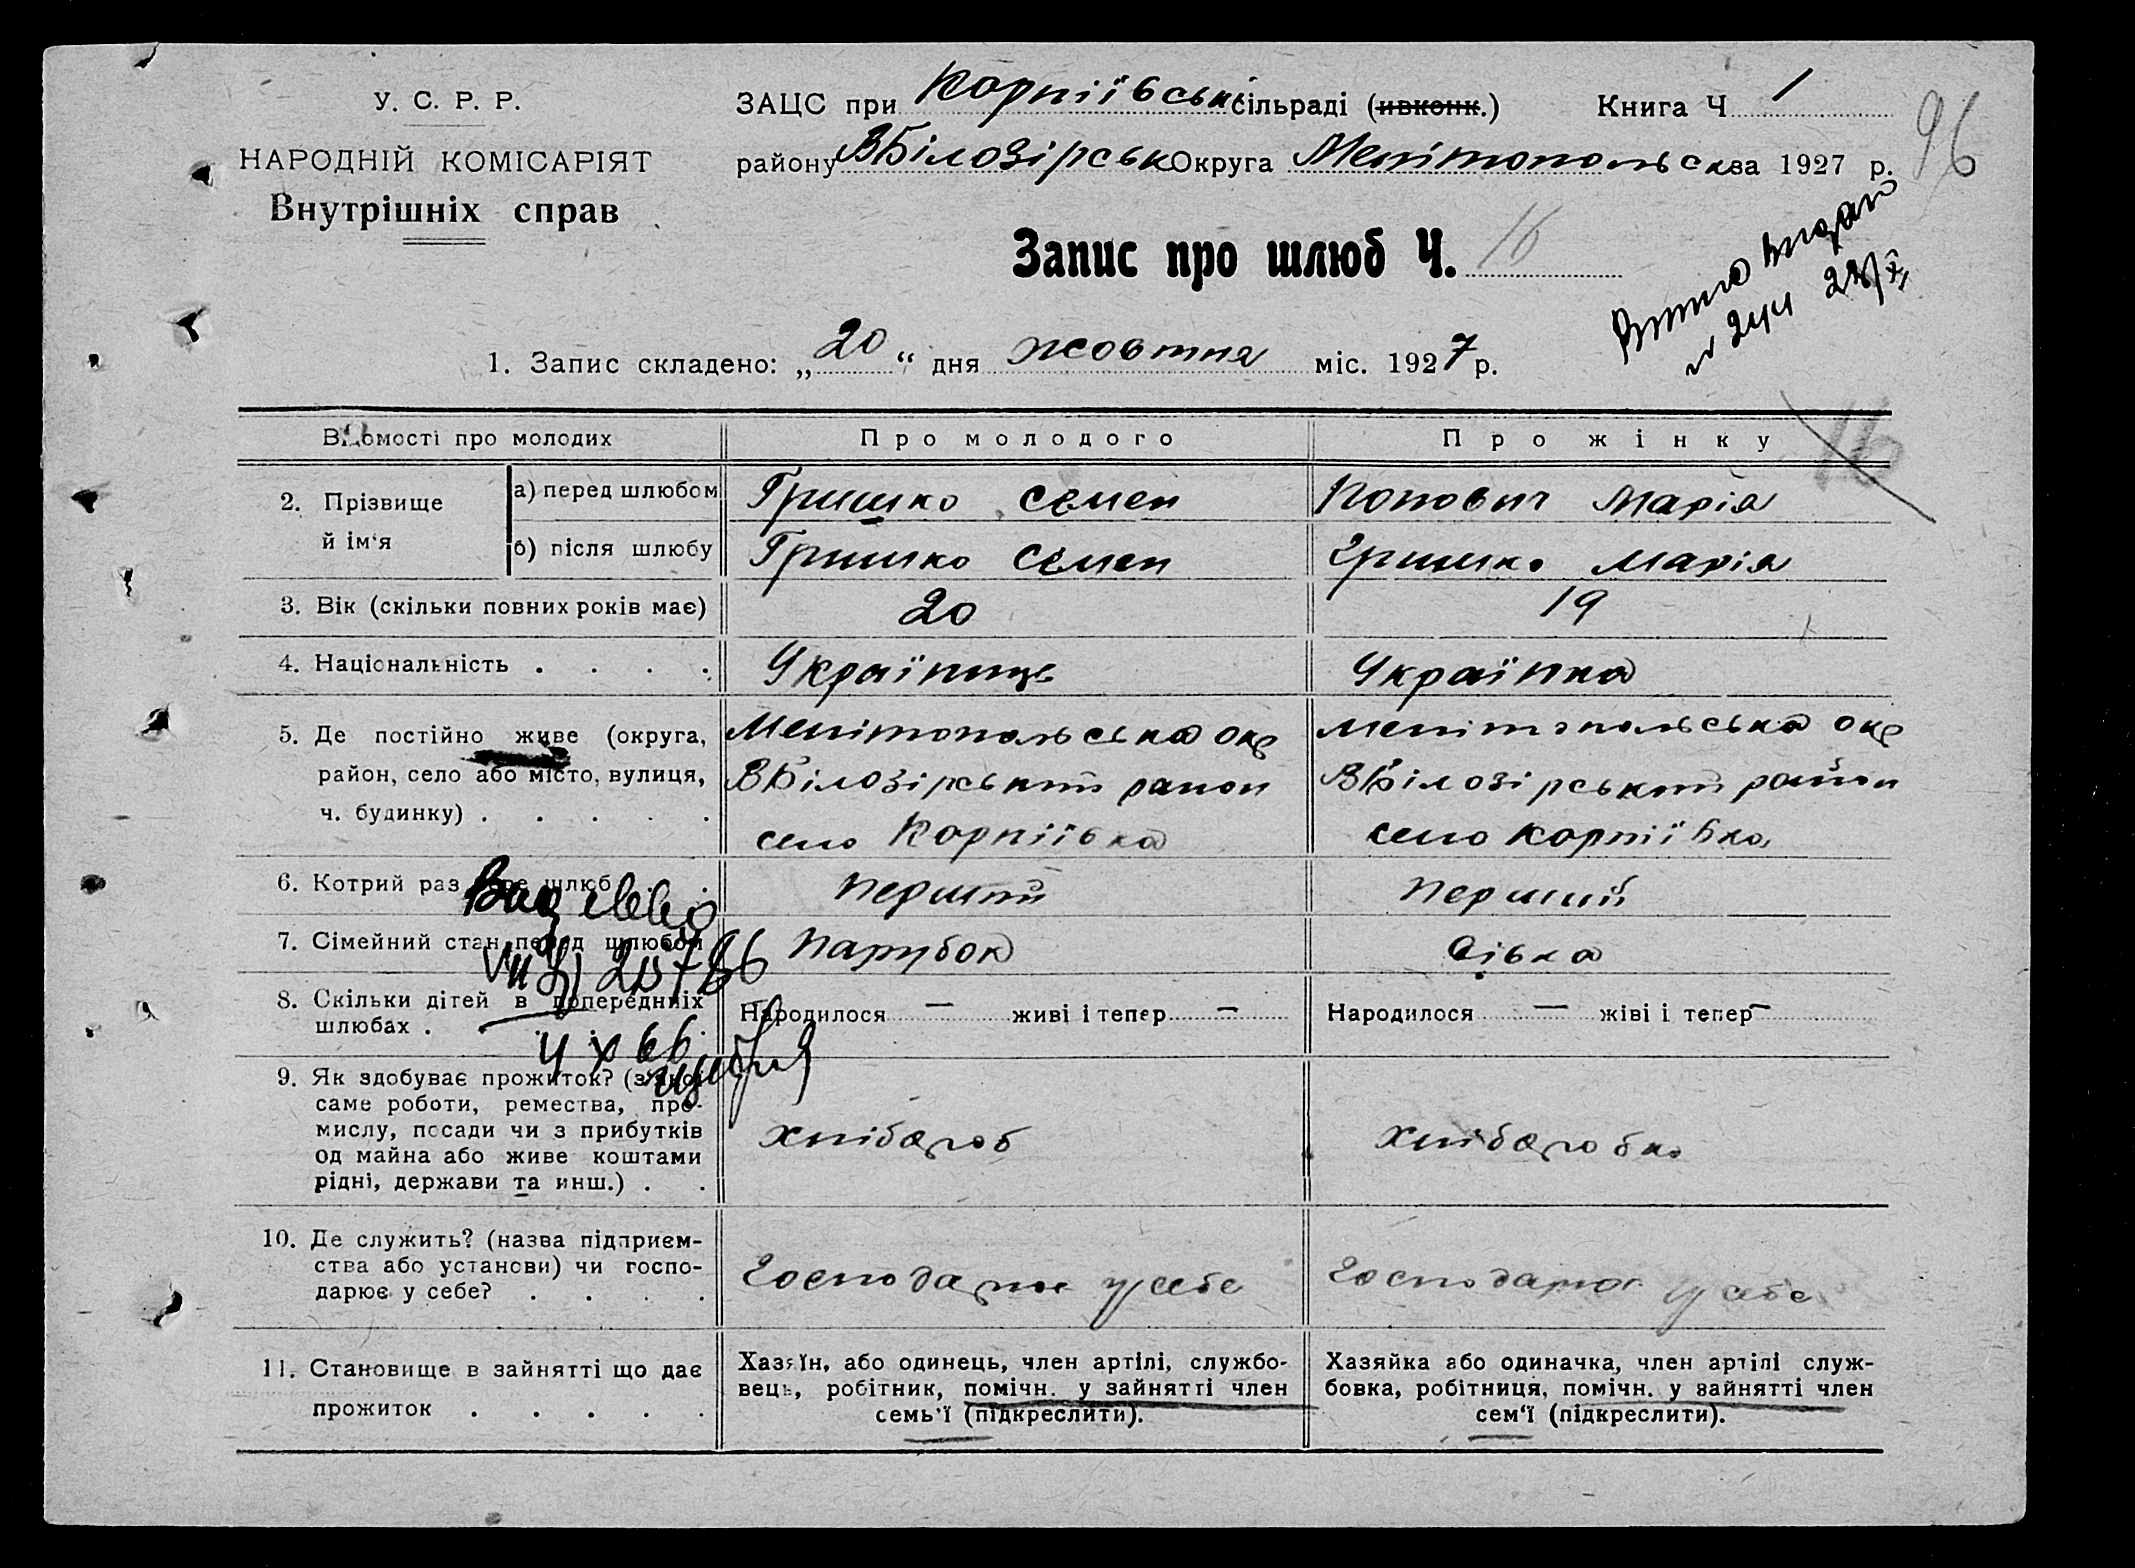 У. С. Р. Р.
НАРОДНІЙ КОМІСАРІЯТ
Внутрішніх справ
ЗАЦС при Корніївській сільраді (ивконк.) Книга Ч 1
району ВБілозірськ Округа Мелітопольська 1927 р.
96
Запис про шлюб Ч. 16
1. Запис складено: „20“ дня жовтня міс. 1927 р.
Відомості про молодих Про молодого Про жінку
16
2. Прізвище й ім‘я
а) перед шлюбом Гришко Семен Попович Марія
б) після шлюбу Гришко Семен Гришко Марія
3. Вік (скільки повних років має) 20 19
4. Національність . . . . Українць Українка
5. Де постійно живе (округа, Мелітопольська окр Мелітопольська окр
район, село або місто, вулиця, ВБілозірський район ВБілозірський район
ч. будинку) . . . . . село Корніївка село Корніївка
6. Котрий раз бере шлюб . . Перший Перший
7. Сімейний стан перед шлюбом Парубок Дівка
8. Скільки дітей в попередніх Народилося — живі і тепер — Народилося — жіві і тепер —
шлюбах .
4 X 66
9. Як здобуває прожиток? (з якої
саме роботи, ремества, про-
мислу, посади чи з прибутків хлібароб хлібаробка
од майна або живе коштами
рідні, держави та инш.) . .
10. Де служить? (назва підприєм-
ства або установи) чи госпо- Господарює у себе Господарює у себе
дарює у себе? . . . .
11. Становище в зайнятті що дає
прожиток . . . . .
Хазяїн, або одинець, член артілі, службо-
вець, робітник, помічн. у зайнятті член
семь'ї (підкреслити).
Хазяйка або одиначка, член артілі служ-
бовка, робітниця, помічн. у зайнятті член
сем‘ї (підкреслити).